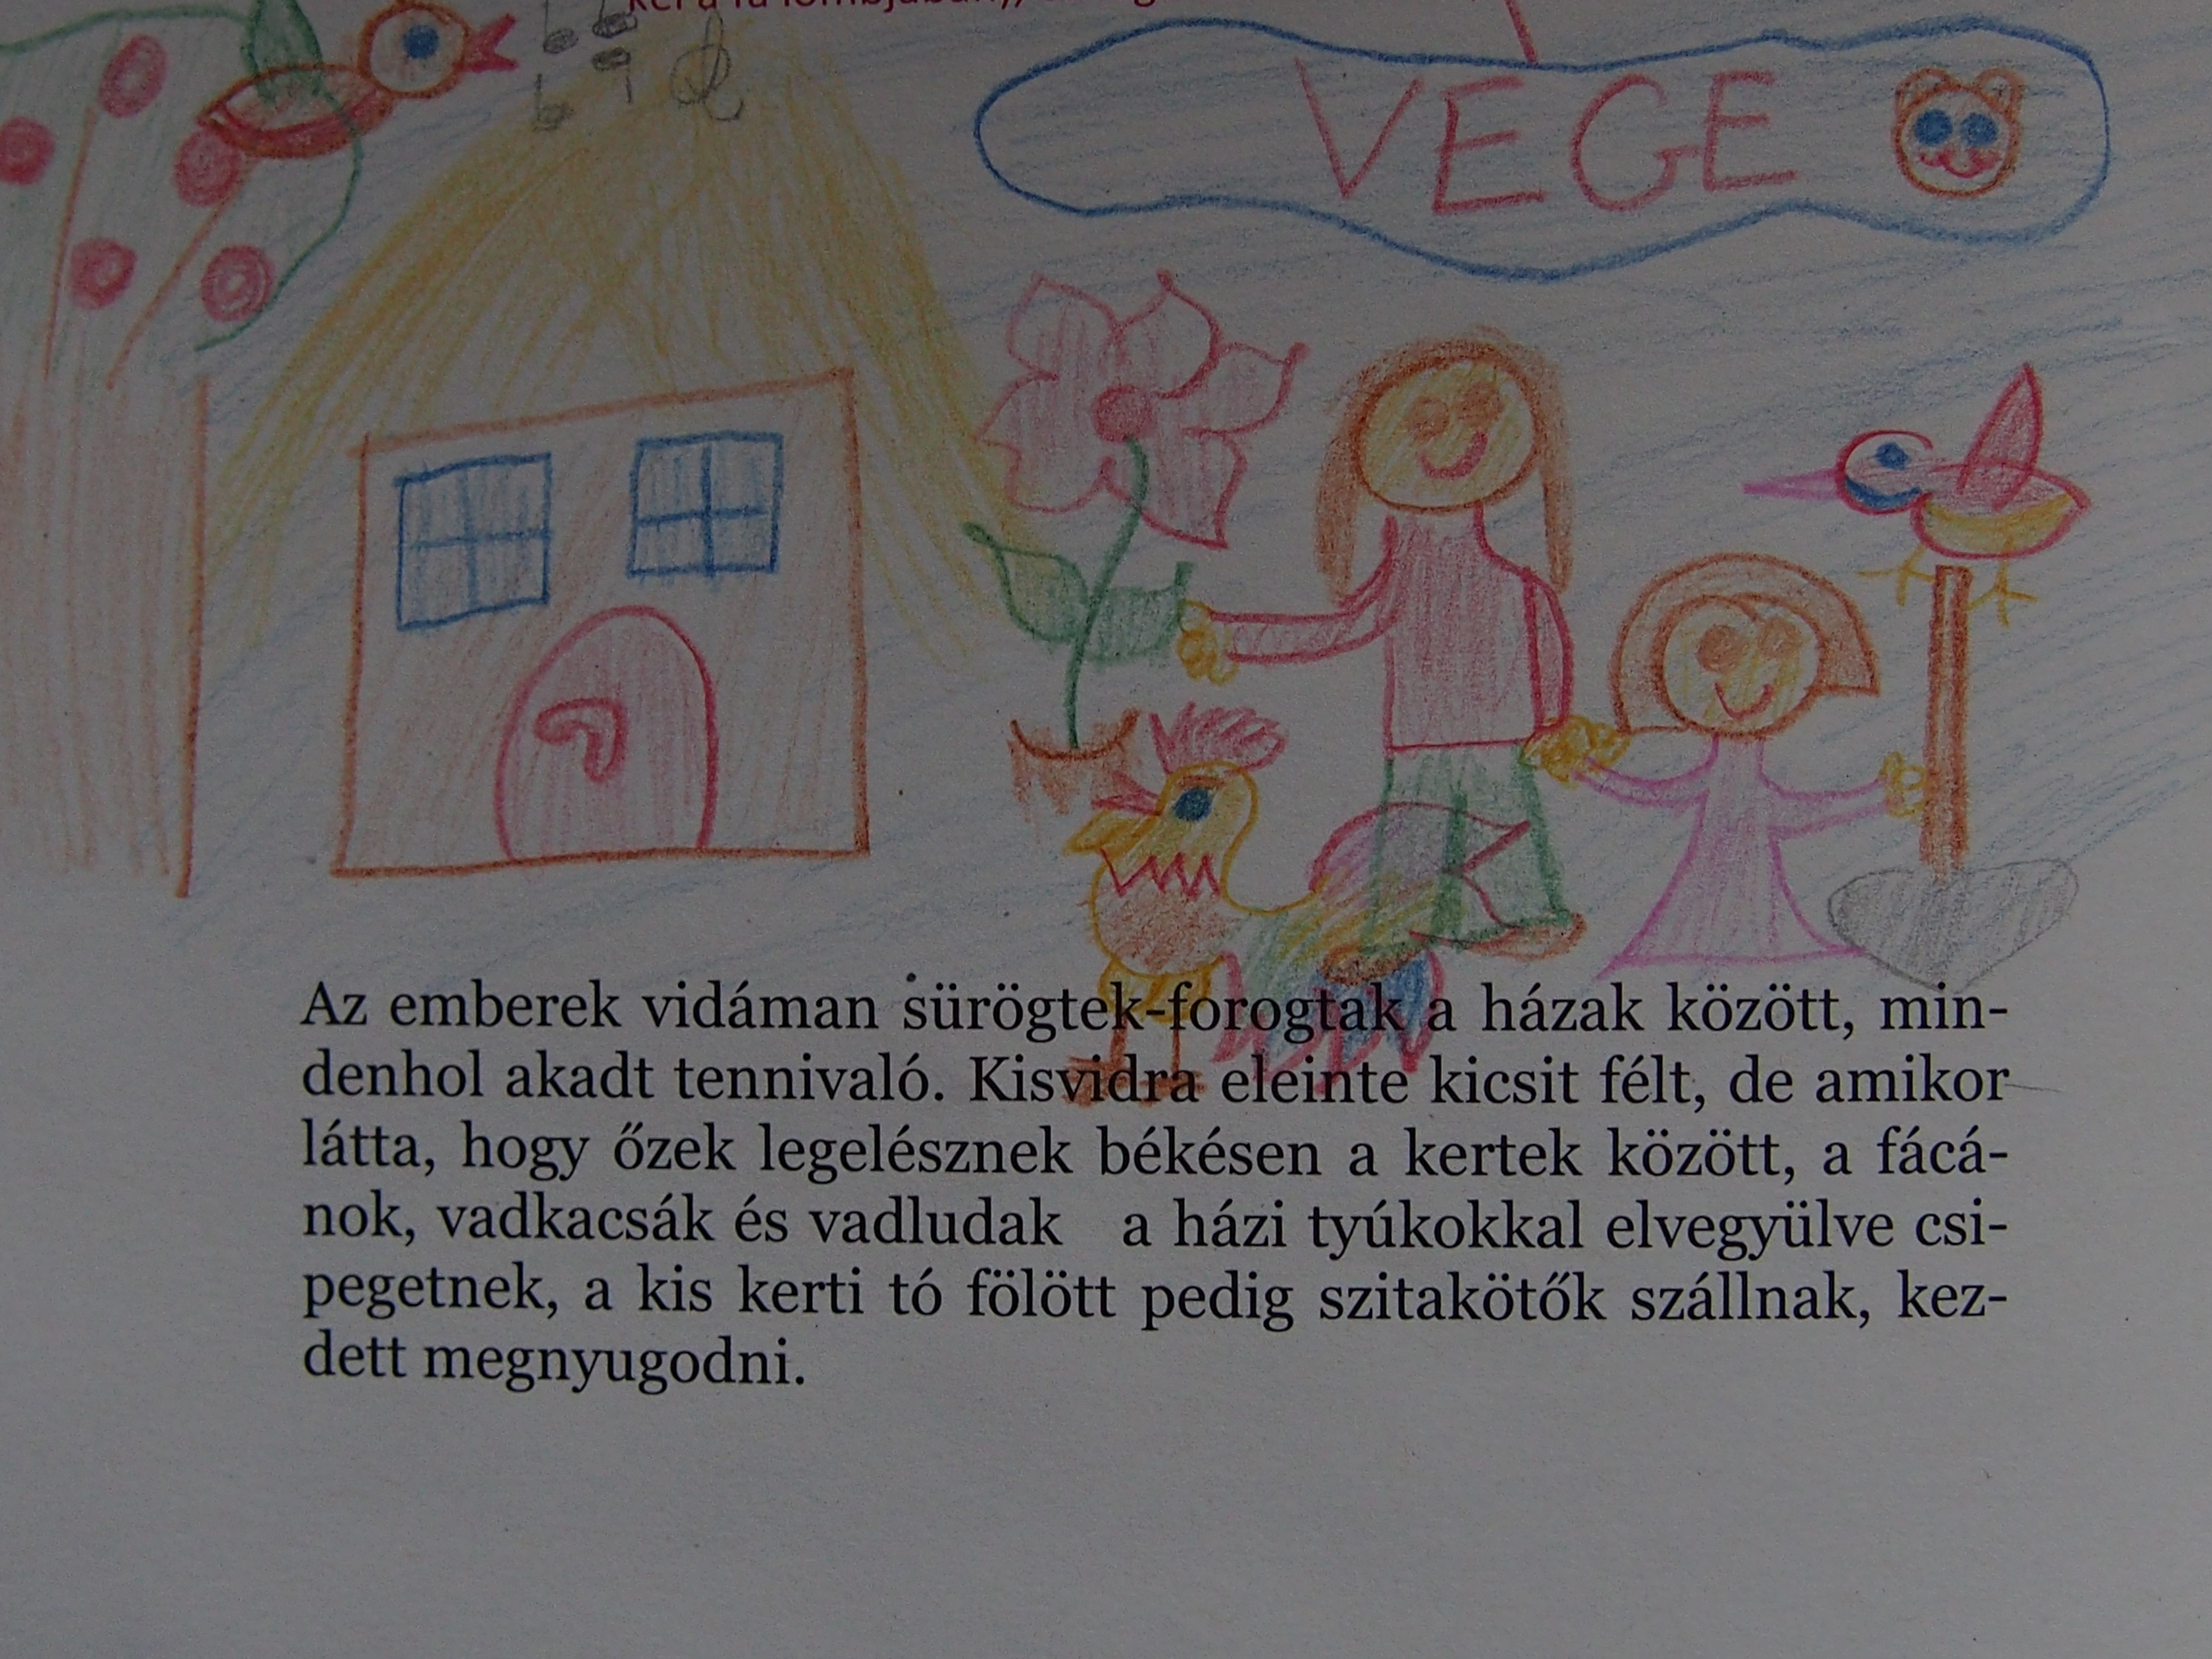 VEGE
Az emberek vidáman sürögtek-forogtak a házak között, min-
denhol akadt tennivaló. Kisvidra eleinte kicsit félt, de amikor
látta, hogy őzek legelésznek békésen a kertek között, a fácá-
nok, vadkacsák és vadludak a házi tyúkokkal elvegyülve csi-
pegetnek, a kis kerti tó fölött pedig szitakötők szállnak, kez-
dett megnyugodni.